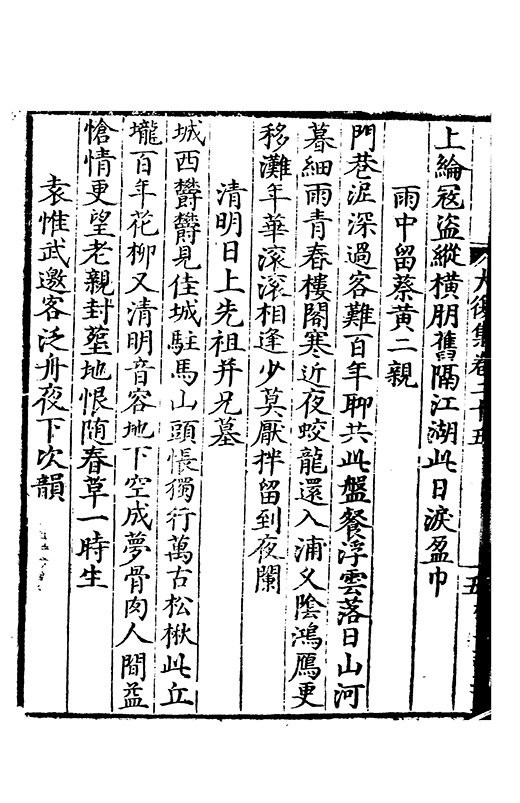 上綸冦盗縱橫朋舊隔江湖此日淚盈巾
雨中留蔡黃二親
門巷泥深過客難百年聊共此盤餐浮雲落日山河
暮細雨青春樓閣寒近夜蛟龍還入浦乂陰鴻鴈更
移灘年華滚滚相逢少莫厭拌留到夜闌
清明日上先祖并兄墓
城西欝欝見佳城駐馬山頭悵獨行萬古松楸此丘
壠百年花柳又清明音容地下空成夢骨肉人間益
愴情更望老親封塟地恨随春草一時生
袁惟武邀客泛舟夜下次韻